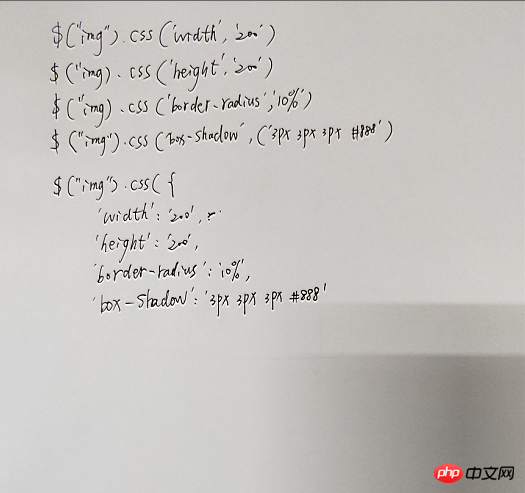 $("img").css('width','200')
$("img).css('height','200')
$("img).css('border-radius','10%')
$("img").css('box-shadow',('3px 3px 3px #888')
$("img").css({
'width':'200',
'height':'200',
'border-radius':'10%',
'box-shadow':'3px 3px 3px #888'
php 中文网